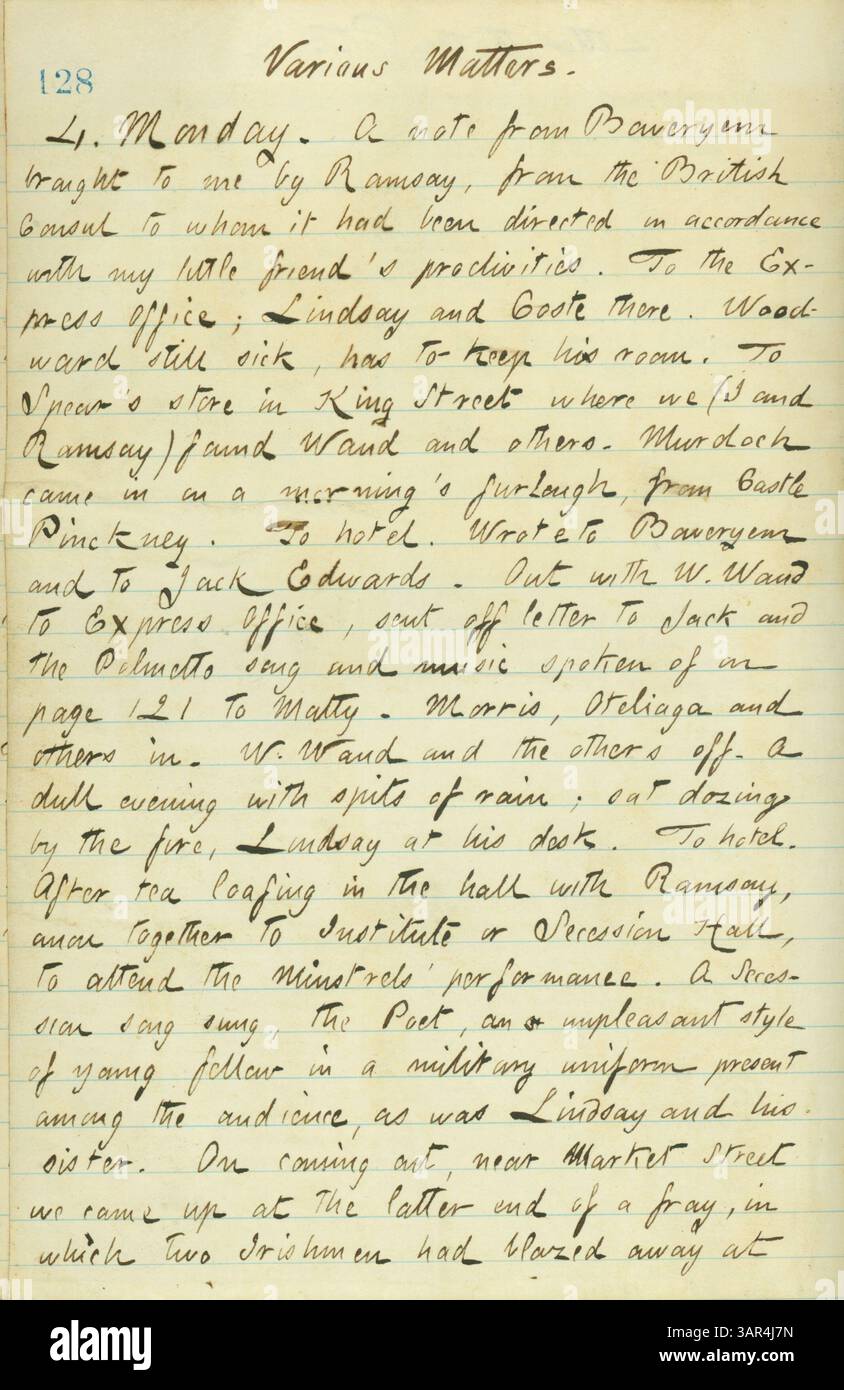 128
Various Matters.
4. Monday. A note from Boweryem
brought to me by Ramsay, from the British
Consul to whom it had been directed in accordance
with my little friend's proclivities. To the Ex-
press Office; Lindsay and Coste there. Wood-
ward still sick, has to keep his room. To
Spear's store in King Street where we (I and
Ramsay) found Waud and others. Murdoch
came in on a morning's furlough, from Castle
Pinckney. To hotel. Wrote to Boweryem
and to Jack Edwards. Out with W. Waud
to Express Office, sent off letter to Jack and
the Palmetto song and music spoken of on
page 121 to Matty. Morris, Oteliaga and
others in. W. Waud and the others off. A
dull evening with spits of rain; sat dozing
by the fire, Lindsay at his desk. To hotel.
After tea loafing in the hall with Ramsay,
anon together to Institute or Secession Hall,
to attend the Minstrels' performance. A Seces-
sion song sung, the Poet, an unpleasant style
of young fellow in a military uniform present
among the audience, as was Lindsay and his
sister. On coming out, near Market Street
we came up at the latter end of a fray, in
which two Irishmen had blazed away at
alamy
a
alamy
Image ID: 3AR4J7N
www.alamy.com